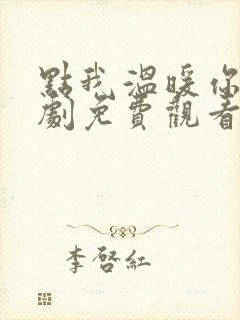 點我溫暖你
劇免費觀看
李啓紅